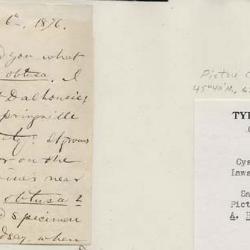 6th, 1876.
d you what
obtusa. I
t Dalhousie
pringville
ty. It grows
r on the
ines near
obtusa 2
d specimen
dsay, when
Pictou C
45°40'N, 6
TY
Cys
Laws
Pict
A.